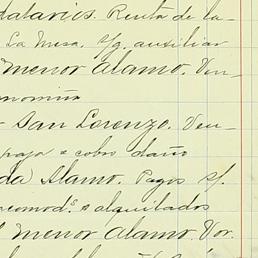 datarios. Renta de la-
La Mesa. s/g. auxiliar
menor Alamo. Ven-
onomia
San Lorenzo. Ven-
paja e cobro daño
da) Alamo. Pagos s/.
acomod.s e alquilados
menor Alamo. Por.